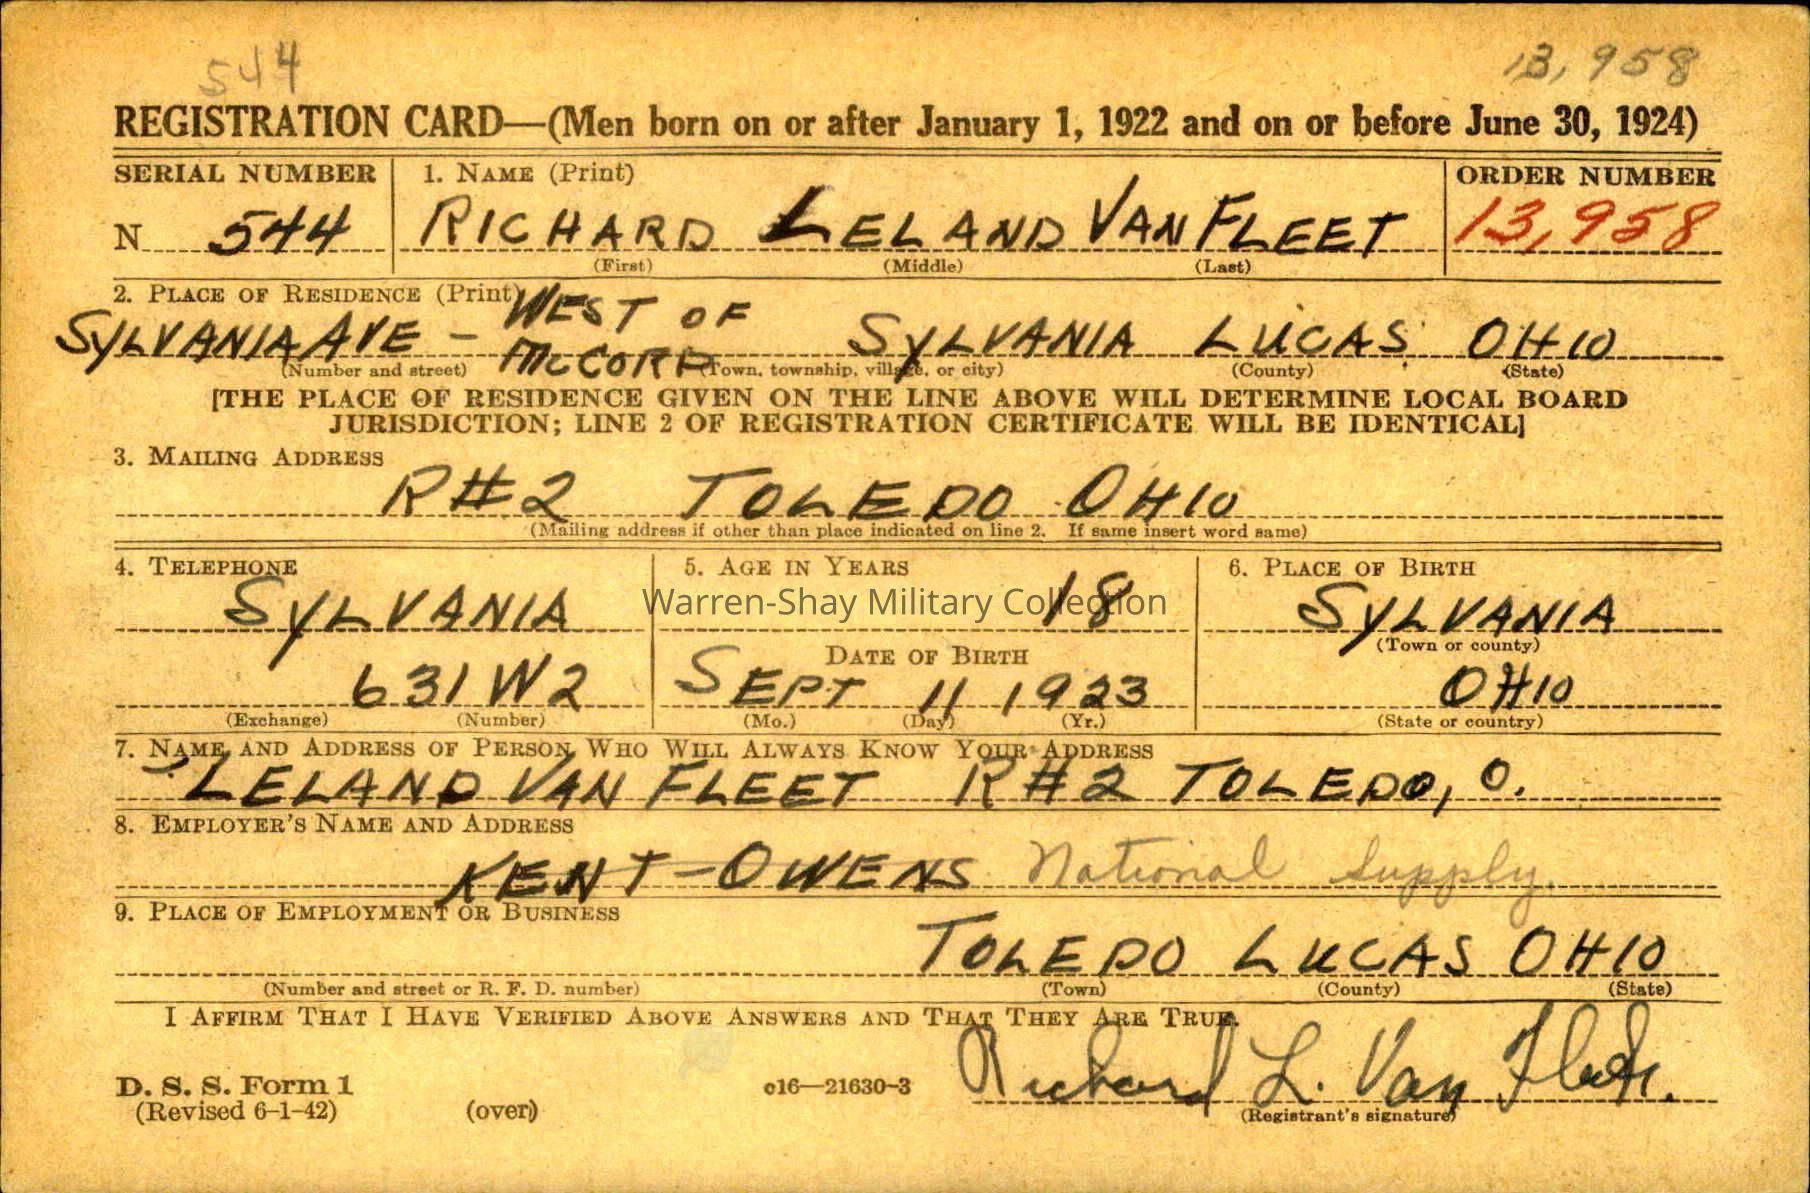 544 13,958
REGISTRATION CARD—(Men born on or after January 1, 1922 and on or before June 30, 1924)
SERIAL NUMBER 1. NAME (Print) ORDER NUMBER
N 544 RICHARD LELAND VAN FLEET 13,958
(First) (Middle) (Last)
2. PLACE OF RESIDENCE (Print) WEST OF
SYLVANIA AVE - MCCORD SYLVANIA LUCAS OHIO
(Number and street) (Town, township, village, or city) (County) (State)
[THE PLACE OF RESIDENCE GIVEN ON THE LINE ABOVE WILL DETERMINE LOCAL BOARD
JURISDICTION; LINE 2 OF REGISTRATION CERTIFICATE WILL BE IDENTICAL]
3. MAILING ADDRESS
R#2 TOLEDO OHIO
(Mailing address if other than place indicated on line 2. If same insert word same)
4. TELEPHONE 5. AGE IN YEARS 6. PLACE OF BIRTH
SYLVANIA 18 SYLVANIA
Warren-Shay Military Collection
DATE OF BIRTH (Town or county)
631 W2 SEPT 11 1923 OHIO
(Exchange) (Number) (Mo.) (Day) (Yr.) (State or country)
7. NAME AND ADDRESS OF PERSON WHO WILL ALWAYS KNOW YOUR ADDRESS
LELAND VAN FLEET R#2 TOLEDO, O.
8. EMPLOYER'S NAME AND ADDRESS
KENT-OWENS National Supply.
9. PLACE OF EMPLOYMENT OR BUSINESS
TOLEDO LUCAS OHIO
(Number and street or R. F. D. number) (Town) (County) (State)
I AFFIRM THAT I HAVE VERIFIED ABOVE ANSWERS AND THAT THEY ARE TRUE.
D. S. S. Form 1 c16—21630-3 Richard L. Van Fleet.
(Revised 6-1-42) (over) (Registrant's signature)